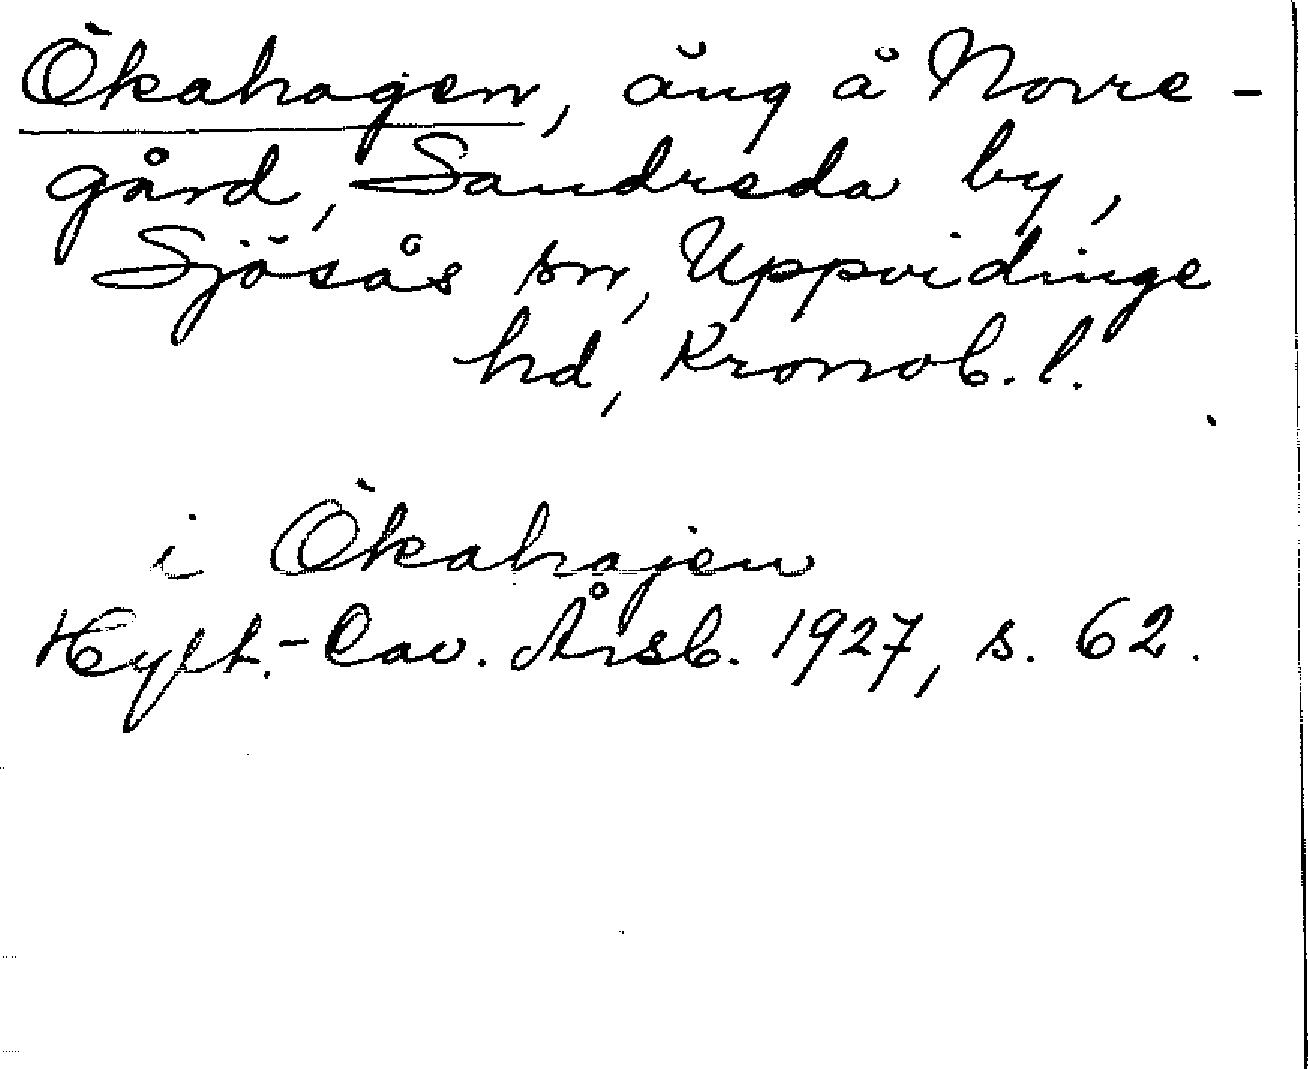 Ökahagen, äng å Norre-
gård, Sandreda by,
Sjösås sn, Uppvidinge
hd, Kronob. l.
i Ökahajen
Hylt.-Cav. Årsb. 1927, s. 62.